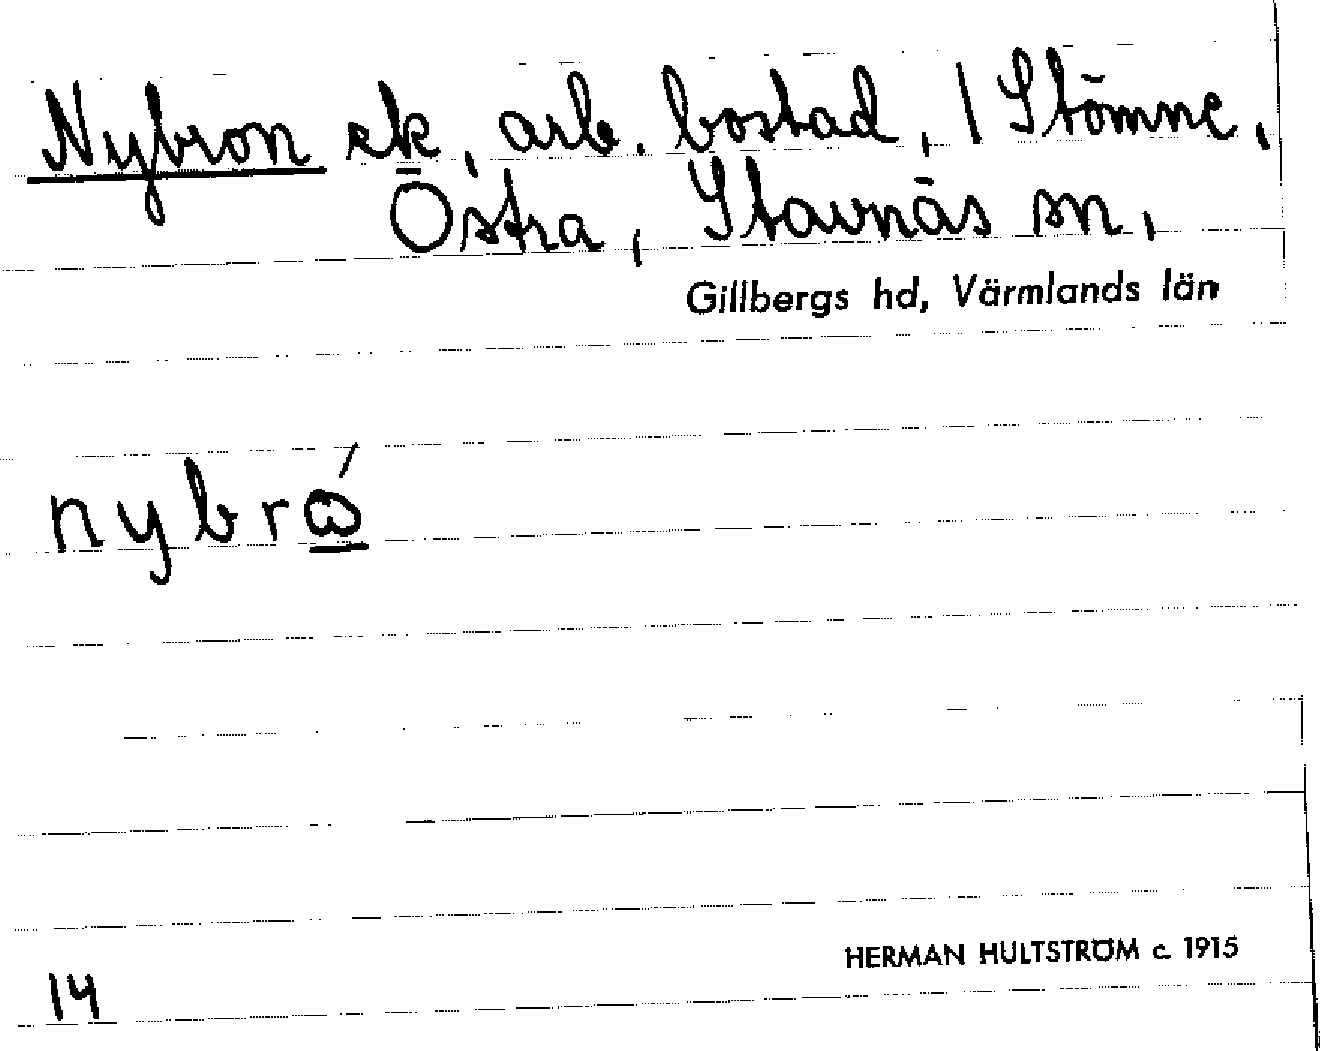 Nybron sk, arb. bostad, / Stömne,
Östra, Stavnäs sn,
Gillbergs hd, Värmlands län
nybrɷ́
HERMAN HULTSTRÖM c. 1915
14